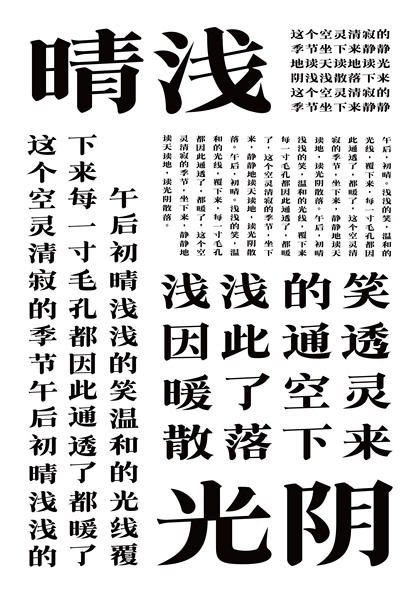 晴浅
这个空灵清寂的
季节坐下来静静
地读天读地读光
阴浅浅散落下来
这个空灵清寂的
季节坐下来静静
午后初晴浅浅的笑温和的光线覆
下来每一寸毛孔都因此通透了都暖了
这个空灵清寂的季节午后初晴浅浅的
午后，初晴。浅浅的笑，温和的
光线，覆下来，每一寸毛孔都因
此通透了，都暖了，这个空灵清
寂的季节，坐下来，静静地读天
读地，读光阴散落。午后，初晴
浅浅的笑，温和的光线，覆下来
每一寸毛孔都因此通透了，都暖
了，这个空灵清寂的季节，坐下
来，静静地读天读地，读光阴散
落。午后，初晴。浅浅的笑，温
和的光线，覆下来，每一寸毛孔
都因此通透了，都暖了，这个空
灵清寂的季节，坐下来，静静地
读天读地，读光阴散落。
浅浅的笑
因此通透
暖了空灵
散落下来
光阴